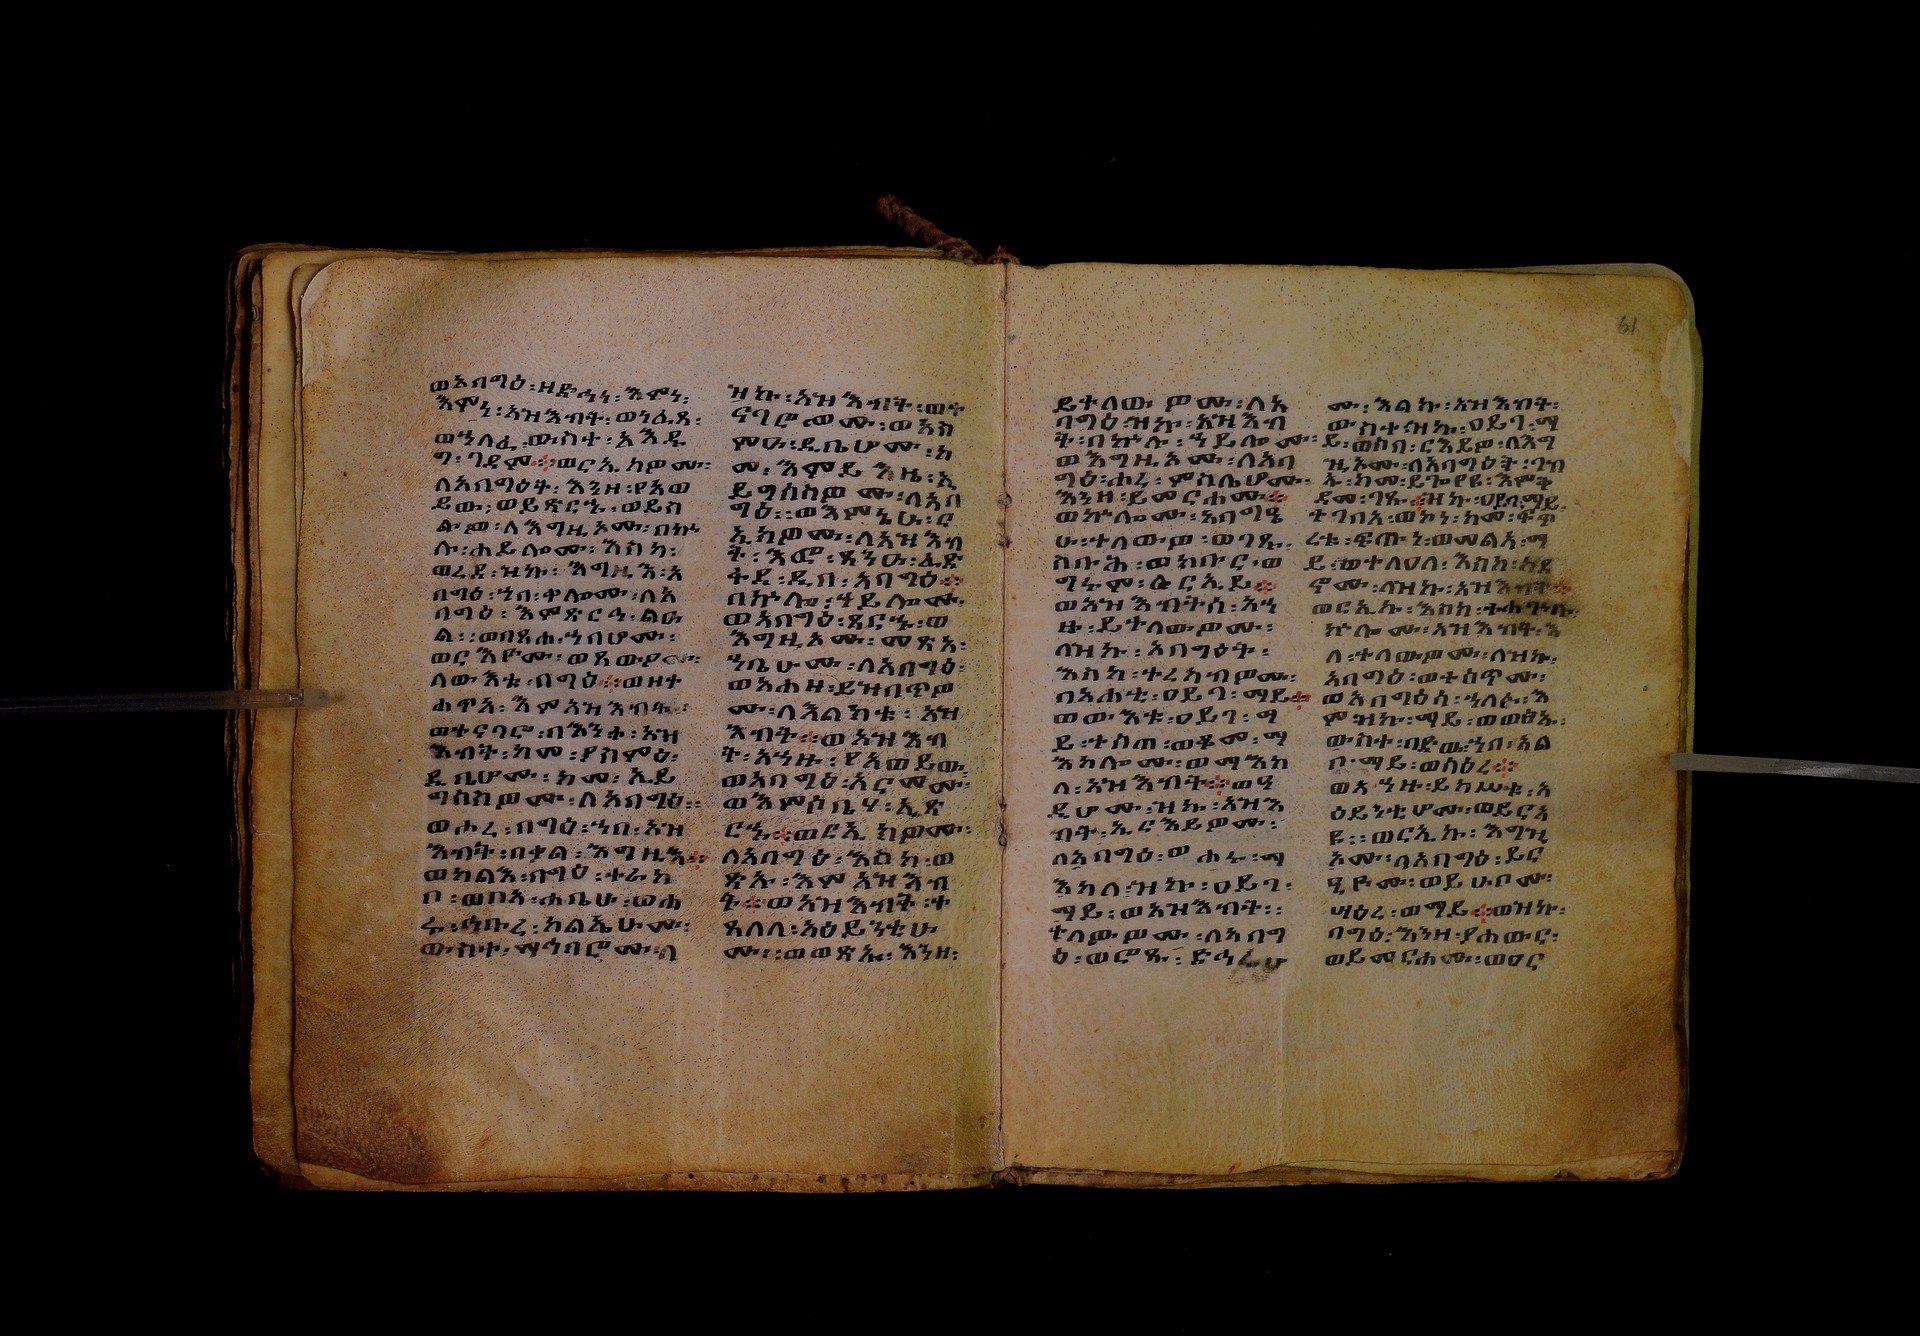 ወአበግዕ፡ዘድኅነ፡እምነ፡
እምነ፡አዝእብት፡ወነፈጸ፡
ወኀለፈ፡ውስተ፡አእዱ
ግ፡ገዳም፨ወርኢክዎሙ፡
ለአበግዕት፡እንዘ፡የአወ
ይው፡ወይጸርኁ፡ወይስ
ለአበግዕ፡
ሉ፡ኀይሎሙ፡እስከ፡
ወረደ፡ዝኩ፡እግዚእ፡አ
በግዕ፡ኀበ፡ቀሎሙ፡ለአ
በግዕ፡እምጽርሕ፡ልዑ
ል፡፡ወበጽሐ፡ኀበሆሙ፡
ወርእዮሙ፡
ለውእቱ፡በግዕ፨ወዘተ
ሐጥአ፡እምአዝእብት፡
ወተናገሮ፡በእንተ፡አዝ
እብት፡ከመ፡ያስምዕ፡
ዲቤሆሙ፡ከመ፡ኢይ
ግስስዎሙ፡ለአበግዕ፡፡
ወሐረ፡በግዕ፡ኀበ፡አዝ
እብት፡በቃል፡እግዚእ፨
ወካልእ፡በግዕ፡ተራከ
ቦ፡ወቦአ፡ሐቤሁ፡ወሐ
ሩ፡ኅቡረ፡ክልኤሆሙ፡
ውስተ፡ማኅበሮሙ፡ለ
ዝኩ፡አዝእብት፡ወተ
ናገሮሙ፡ወአስ
ምዑ፡ዲቤሆሙ፡ከ
መ፡እምይእዜ፡ኢ
ይግስስዎሙ፡ለአበ
ግዕ፡፡ወእምኔሁ፡ር
ኢክዎሙ፡ለአዝእብ
ት፡እፎ፡ጸንዑ፡ፈድ
ፋደ፡ዲበ፡አባግዕ፨
በኵሎ፡ኀይሎሙ፡
ወአበግዕ፡ጸርኁ፡ወ
እግዚኦሙ፡መጽአ፡
ኀቤሁሙ፡ለአበግዕ፡
ወአሐዘ፡ይዝብጥዎ
ሙ፡ለእልክቱ፡አዝ
እብት፨ወአዝእብ
ት፡አኀዙ፡የአወይው፡
ወአበግዕ፡አርመሙ፡
ወእምሶቤሃ፡ኢጸ
ርኁ፨ወርኢክዎሙ፡
ለአበግዕ፡እስከ፡ወ
ጽኡ፡እምአዝእብ
ት፨ወአዝእብት፡ተ
ጸለለ፡አዕይንቲሁ
ሙ፡፡ወወጽኡ፡እንዘ፡
ይተለውዎሙ፡ለአ
በግዕ፡ዝኩ፡አዝእብ
ት፡በኵሉ፡ኀይሎሙ፡
ወእግዚኦሙ፡ለአበ
ግዕ፡ሐረ፡ምስሌሆሙ፡
እንዘ፡ይመርሐሙ፨
ወኵሎሙ፡አባግዒ
ሁ፡ተለውዎ፡ወገጹ፡
ስቡሕ፡ወክቡር፡ወ
ግሩም፡ለርእይ፨
ወአዝእብትሰ፡አኀ
ዙ፡ይትለውዎሙ፡
ለዝኩ፡አባግዕት፡
እስከ፡ተረአክብዎሙ፡
በአሐቲ፡ዐይገ፡ማይ፨
ወውእቱ፡ዐይገ፡ማ
ይ፡ተሰጠ፡ወቆመ፡ማ
እከሎሙ፡ወማእከ
ለ፡አዝእብት፨ወዓ
ዲሆሙ፡ዝኩ፡አዝእ
ብት፡ኢርእይዎሙ፡
ለአበግዕ፡ወሐሩ፡ማ
እከለ፡ዝኩ፡ዐይገ፡
ማይ፡ወአዝእብት፡፡
ተለውዎሙ፡ለአበግ
ዕ፡ወሮጹ፡ድኅሬሁ
ሙ፡እልኩ፡አዝእብት፡
ውስተ፡ዝኩ፡ዐይገ፡ማ
ይ፡ወሶበ፡ርእይዎ፡ለእግ
ዚኦሙ፡ለአበግዕት፡ገብ
ኡ፡ከመ፡ይጕየዩ፡እምቅ
ድመ፡ገጹ፨ዝኩ፡ዐይገ፡ማይ፡
ተገብአ፡ወኮነ፡ከመ፡ፍጥ
ረቱ፡ፍጡነ፡ወመልአ፡ማ
ይ፡ወተለዐለ፡እስከ፡ከደ
ኖሙ፡ለዝኩ፡አዝእብት፨
ወርኢኩ፡እስከ፡ተሐጕሉ፡
ኵሎሙ፡አዝእብት፡እ
ለ፡ተለውዎሙ፡ለዝኩ፡
አባግዕ፡ወተሰጥሙ፡
ወአበግዕሰ፡ኀለፉ፡እ
ምዝኩ፡ማይ፡ወወፅኡ፡
ውስተ፡በድው፡ኀበ፡አል
ቦ፡ማይ፡ወሣዕረ፨
ወአኀዙ፡ይክሥቱ፡አ
ዕይንቲሆሙ፡ወይርአ
ዩ፡፡ወርኢኩ፡እግዚ
ኦሙ፡ለአበግዕ፡ይር
ዒዮሙ፡ወይሁቦሙ፡
ሣዕረ፡ወማይ፨ወዝኩ፡
በግዕ፡እንዘ፡ያሐውር፡
ወይመርሐሙ፡
61